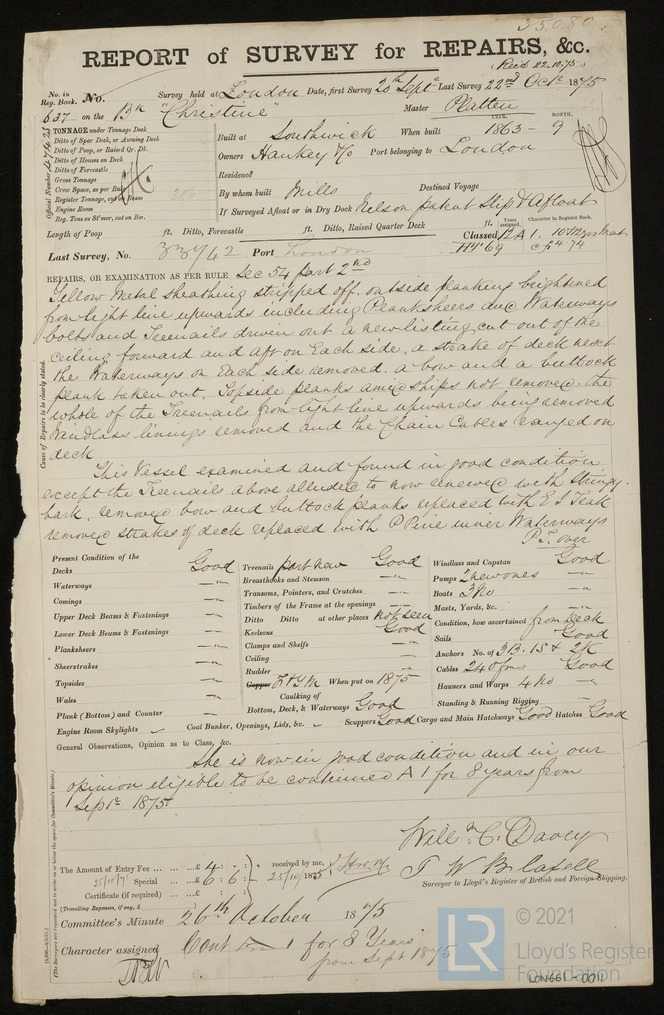 35080
REPORT of SURVEY for REPAIRS, &c.
Recd 22.10.75
No. in Reg. Book. No. Survey held at London Date, first Survey 20th Septr Last Survey 22nd Octr 1875
637 on the Bk "Christine" Master Platten
TONNAGE under Tonnage Deck
Ditto of Spar Deck, or Awning Deck
Ditto of Poop, or Raised Qr. Dk.
Ditto of Houses on Deck
Ditto of Forecastle
Gross Tonnage
Crew Space, as per Rule
Register Tonnage, cut on Beam
Engine Room
Reg. Tons as St'mer, cut on Bm.
Official Number
YEAR. MONTH.
Built at Southwick When built 1863 - 9
Owners Hankey & Co Port belonging to London
Residence
By whom built Mills Destined Voyage
If Surveyed Afloat or in Dry Dock Nelson patent Slip & Afloat
Length of Poop ft. Ditto, Forecastle ft. Ditto, Raised Quarter Deck ft.
Years assigned. Character in Register Book.
Classed 12 A 1.
Last Survey, No. 33742 Port London
REPAIRS, OR EXAMINATION AS PER RULE Sec 54 part 2nd
Cause of Repairs to be clearly stated.
Yellow Metal sheathing stripped off. outside planking brightened
from light line upwards including Planksheers and Waterways
bolts and Treenails driven out a new listing cut out of the
ceiling forward and aft on Each side. a strake of deck next
the Waterways on Each side removed. a bow and a buttock
plank taken out. Topside planks amidships not removed. the
whole of the Treenails from light line upwards being removed
Windlass linings removed and the Chain Cables ranged on
deck
This Vessel examined and found in good condition
except the Treenails above alluded to now renewed with Stringy
bark. removed bow and buttock planks replaced with E I Teak
removed strakes of deck replaced with P Pine inner Waterways
P.T. over
Present Condition of the
Decks Good
Waterways "
Comings "
Upper Deck Beams & Fastenings "
Lower Deck Beams & Fastenings "
Planksheers "
Sheerstrakes "
Topsides "
Wales "
Plank (Bottom) and Counter "
Treenails part new Good
Breasthooks and Stemson "
Transoms, Pointers, and Crutches "
Timbers of the Frame at the openings "
Ditto Ditto at other places not seen
Keelsons Good
Clamps and Shelfs "
Ceiling "
Rudder "
Copper F & Y M When put on 1875
Caulking of
Bottom, Deck, & Waterways Good
Windlass and Capstan Good
Pumps 2 new ones "
Boats 3 No "
Masts, Yards, &c. "
Condition, how ascertained from Deck
Sails Good
Anchors No. of 3 B. 1 S & 2 K
Cables 240 fms Good
Hawsers and Warps 4 No "
Standing & Running Rigging "
Engine Room Skylights Coal Bunker, Openings, Lids, &c. Scuppers Good Cargo and Main Hatchways Good Hatches Good
General Observations, Opinion as to Class, &c.
She is now in good condition and in our
opinion eligible to be continued A 1 for 8 years from
Sept 1875
Willm C. Davey
The Amount of Entry Fee £ 4 : :
25/10/75 Special £ 6 : 6 : received by me,
25/10/1875
Certificate (if required)
(Travelling Expenses, if any, £
Surveyor to Lloyd's Register of British and Foreign Shipping.
Committee's Minute 26th October 1875
Character assigned Cont A 1 for 8 Years
from Sept 1875
LR © 2021
Lloyd's Register
Foundation
LON661-0011